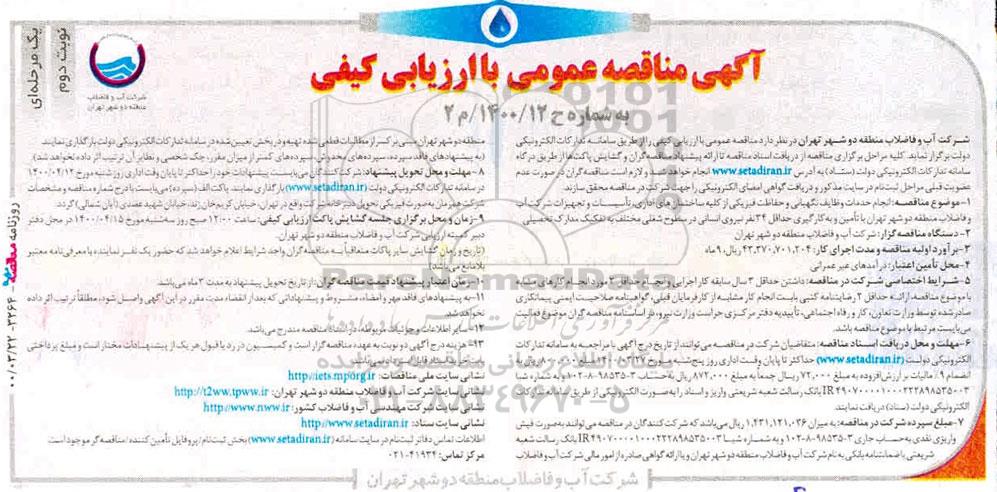 یک مرحله‌ای
نوبت دوم
شرکت آب و فاضلاب
منطقه دو شهر تهران
آگهی مناقصه عمومی با ارزیابی کیفی
به شماره ح ۱۴۰۰/۱۲/م ۲
شرکت آب و فاضلاب منطقه دو شهر تهران در نظر دارد مناقصه عمومی با ارزیابی کیفی را از طریق سامانه تدارکات الکترونیکی
دولت برگزار نماید. کلیه مراحل برگزاری مناقصه از دریافت اسناد مناقصه تا ارائه پیشنهاد مناقصه گران و گشایش پاکت‌ها از طریق درگاه
سامانه تدارکات الکترونیکی دولت (ستاد) به آدرس www.setadiran.ir انجام خواهد شد و لازم است مناقصه گران در صورت عدم
عضویت قبلی مراحل ثبت‌نام در سایت مذکور و دریافت گواهی امضای الکترونیکی را جهت شرکت در مناقصه محقق سازند.
۱- موضوع مناقصه: انجام خدمات وظایف نگهبانی و حفاظت فیزیکی از کلیه ساختمان‌های اداری، تأسیسات و تجهیزات شرکت آب
و فاضلاب منطقه دو شهر تهران با تأمین و به کارگیری حداقل ۳۴ نفر نیروی انسانی در سطوح شغلی مختلف به تفکیک مدارک تحصیلی
۲- دستگاه مناقصه گزار: شرکت آب و فاضلاب منطقه دو شهر تهران
۳- برآورد اولیه مناقصه و مدت اجرای کار: ۴۳,۳۷۰,۷۰۱,۲۰۴ ریال، ۹ ماه
۴- محل تأمین اعتبار: درآمدهای غیر عمرانی
۵- شرایط اختصاصی شرکت در مناقصه: داشتن حداقل ۳ سال سابقه کار اجرایی و انجام حداقل ۲ مورد انجام کارهای مشابه
با موضوع مناقصه، ارائه حداقل ۲ رضایتنامه کتبی بابت انجام کار مشابه از کارفرمایان قبلی، گواهینامه صلاحیت ایمنی پیمانکاری
صادره شده توسط وزارت تعاون، کار و رفاه اجتماعی، تأییدیه دفتر مرکزی حراست وزارت نیرو، در اساسنامه مناقصه گران موضوع فعالیت
می‌بایست مرتبط با موضوع مناقصه باشد.
۶- مهلت و محل دریافت اسناد مناقصه: متقاضیان شرکت در مناقصه می‌توانند از تاریخ درج آگهی با مراجعه به سامانه تدارکات
الکترونیکی دولت (www.setadiran.ir) حداکثر تا پایان وقت اداری روز پنج‌شنبه مورخ ۱۴۰۰/۰۳/۲۷
انضمام ۹٪ مالیات بر ارزش افزوده به مبلغ ۷۲,۰۰۰ ریال جمعاً به مبلغ ۸۷۲,۰۰۰ ریال به حساب
بانک رسالت شعبه شریعتی واریز و اسناد را به صورت الکترونیکی از طریق سامانه تدارکات
الکترونیکی دولت (ستاد) دریافت نمایند.
۷- مبلغ سپرده شرکت در مناقصه: به میزان ۱,۴۳۱,۱۲۱,۰۳۶ ریال می‌باشد که شرکت کنندگان در مناقصه می‌توانند به صورت فیش
واریزی نقدی به حساب جاری ۳-۹۸۵۳۵-۸-۱۰۲ و به شماره شبا بانک رسالت شعبه
شریعتی یا ضمانتنامه بانکی به نام شرکت آب و فاضلاب منطقه دو شهر تهران و یا ارائه گواهی صادره از امور مالی شرکت آب و فاضلاب
منطقه دو شهر تهران مبنی بر کسر از مطالبات قطعی شده تهیه و در بخش تعیین شده در سامانه تدارکات الکترونیکی دولت بارگذاری نمایند
(به پیشنهادهای فاقد سپرده، سپرده‌های مخدوش، سپرده‌های کمتر از میزان مقرر، چک شخصی و نظایر آن ترتیب اثر داده نخواهد شد).
۸- مهلت و محل تحویل پیشنهاد: شرکت کنندگان می‌بایست پیشنهادات خود را حداکثر تا پایان وقت اداری روز شنبه مورخ ۱۴۰۰/۰۴/۱۲
در سامانه تدارکات الکترونیکی دولت (www.setadiran.ir) بارگذاری نمایند. پاکت الف (سپرده) می‌بایست با درج شماره مناقصه و مشخصات
شرکت همزمان به صورت فیزیکی تحویل دبیرخانه شرکت واقع در تهران، خیابان کریم‌خان زند، خیابان شهید عضدی (آبان شمالی) گردد.
۹- زمان و محل برگزاری جلسه گشایش پاکت ارزیابی کیفی: ساعت ۱۲:۰۰ صبح روز سه‌شنبه مورخ ۱۴۰۰/۰۴/۱۵ در محل دفتر
دبیر کمیته ارزیابی شرکت آب و فاضلاب منطقه دو شهر تهران.
(تاریخ و زمان گشایش سایر پاکات متعاقباً به مناقصه گران واجد شرایط اعلام خواهد شد که حضور یک نفر نماینده با معرفی‌نامه معتبر
بلامانع می‌باشد)
۱۰- زمان اعتبار پیشنهاد قیمت مناقصه گران: از تاریخ تحویل پیشنهاد به مدت ۳ ماه می‌باشد.
۱۱- به پیشنهادهای فاقد مهر و امضاء، مشروط و پیشنهاداتی که بعد از انقضاء مدت مقرر در این آگهی واصل شود، مطلقاً ترتیب اثر داده
نخواهد شد.
۱۲- سایر اطلاعات و جزئیات مربوطه، در اسناد مناقصه مندرج می‌باشد.
۱۳- هزینه درج آگهی دو نوبت به عهده مناقصه گزار است و کمیسیون در رد یا قبول هر یک از پیشنهادات مختار است و مبلغ پرداختی
نشانی سایت ملی مناقصات: http://iets.mporg.ir
نشانی سایت شرکت آب و فاضلاب منطقه دو شهر تهران: http://t2ww.tpww.ir
نشانی سایت شرکت مهندسی آب و فاضلاب کشور: http://www.nww.ir
نشانی سایت ستاد: http://www.setadiran.ir
اطلاعات تماس دفاتر ثبت‌نام در سایت سامانه (www.setadiran.ir) بخش ثبت‌نام/پروفایل تأمین کننده/مناقصه گر موجود است
مرکز تماس: ۴۱۹۳۴-۰۲۱
شرکت آب و فاضلاب منطقه دو شهر تهران
روزنامه مناقصه
ParsNamadData
۰۲۱-۸۸۳۴۹۶۷۰-۵